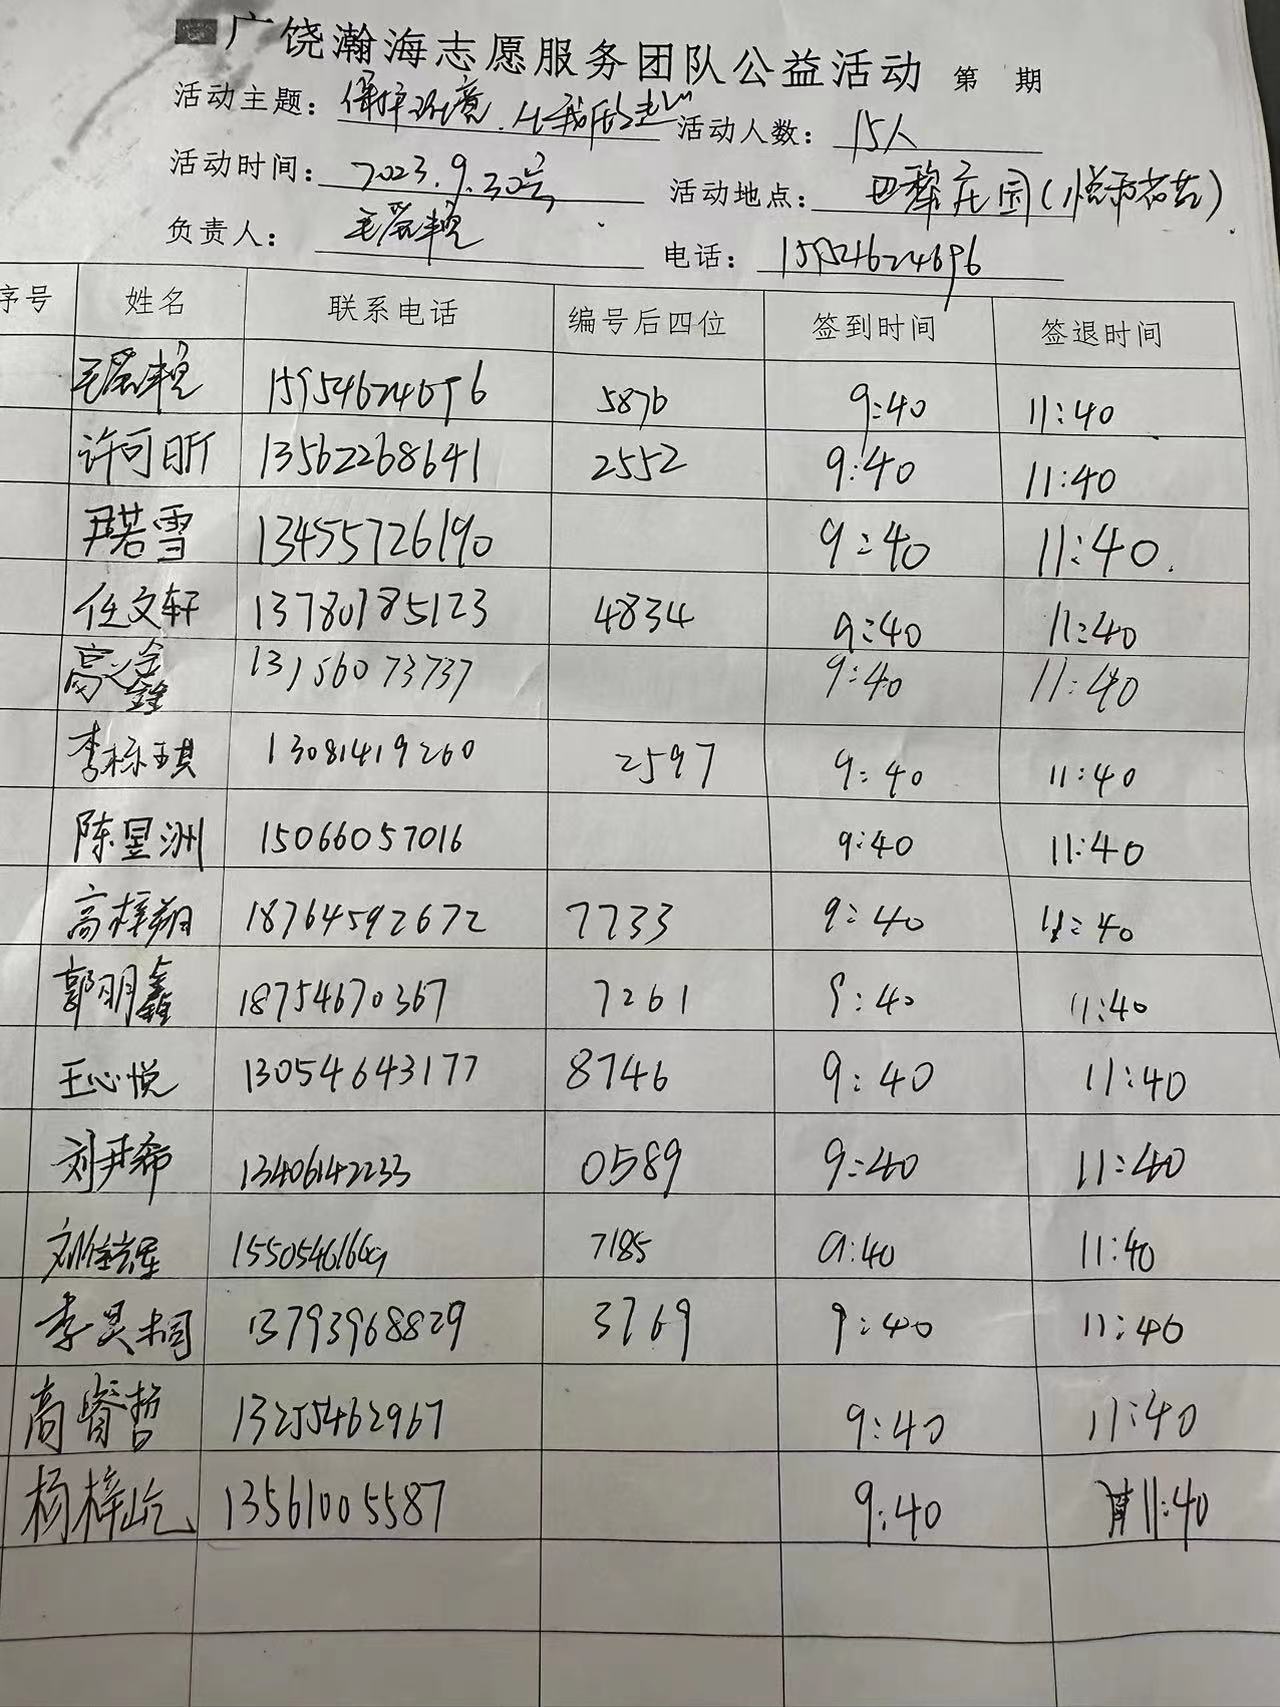 广饶瀚海志愿服务团队公益活动 第 期
活动主题: 保护环境,从我 活动人数: 15人
活动时间: 2023.9.30号 活动地点: 巴黎庄园(
负责人: 电话: 15954624696
序号 姓名 联系电话 编号后四位 签到时间 签退时间
15954624696 5876 9:40 11:40
许可昕 13562268641 2552 9:40 11:40
尹若雪 13455726190 9:40 11:40.
任文轩 13780785123 4834 9:40 11:40
高 鑫 13156073737 9:40 11:40
李栎琪 13081419260 2597 9:40 11:40
陈昱洲 15066057016 9:40 11:40
高梓翔 18764592672 7733 9:40 11:40
郭明鑫 18754670367 7261 9:40 11:40
王心悦 13054643177 8746 9:40 11:40
刘尹希 13406142233 0589 9:40 11:40
7185 9:40 11:40
李昊桐 13793968829 3769 9:40 11:40
高睿哲 13255462967 9:40 11:40
杨梓屹 13561005587 9:40 11:40